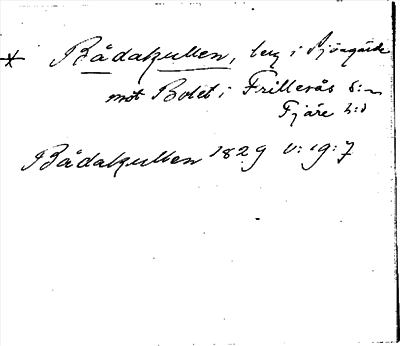 * Bådakullen, berg i Sjöagärde
mot Botet i Frillesås s:n
Fjäre h:d
Bådakullen 1829 V:19:7